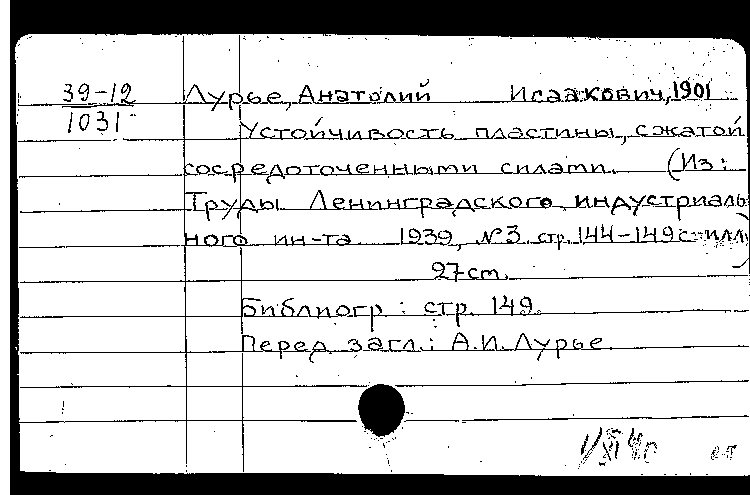 39-12
1031
Лурье, Анатолий Исаакович, 1901
Устойчивость пластины, сжатой
сосредоточенными силами. (Из:
Труды Ленинградского индустриаль
ного ин-та. 1939, №3. стр. 144-149 с илл)
27 cm.
Библиогр: стр. 149.
Перед загл.: А.И. Лурье.